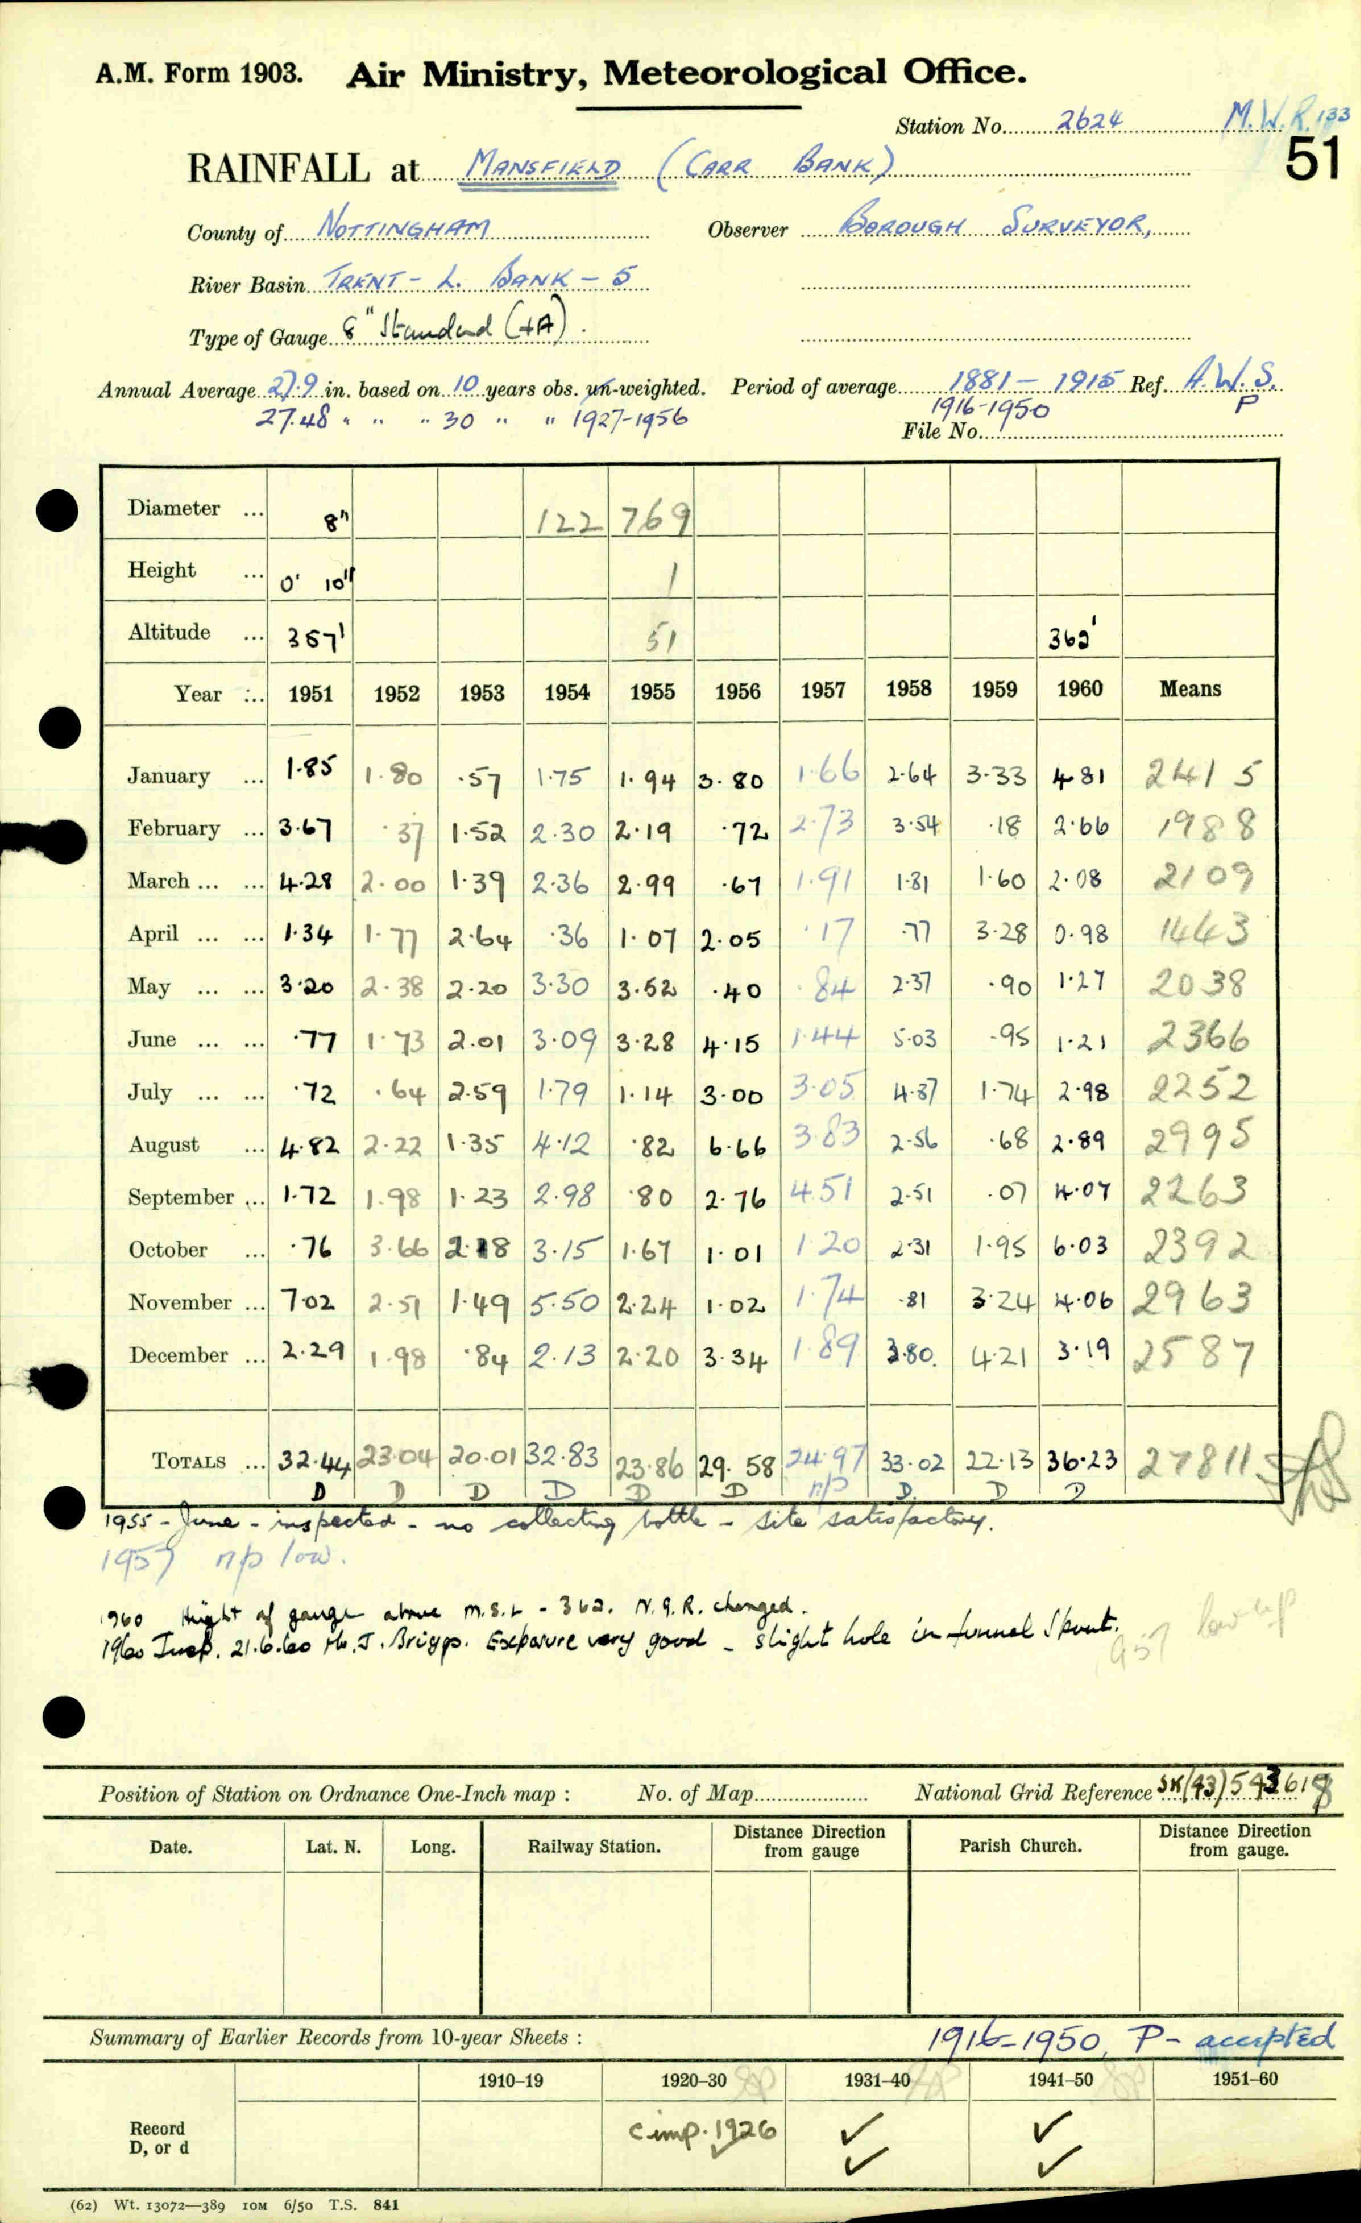 A.M. Form 1903. Air Ministry, Meteorological Office.
Station No. 2624 M.W.R. 133
51
RAINFALL at MANSFIELD (CARR BANK)
County of NOTTINGHAM Observer BOROUGH SURVEYOR,
River Basin TRENT - L. BANK - 5
Type of Gauge 8" Standard (+A).
Annual Average 27.9 in. based on 10 years obs. un-weighted. Period of average 1881 - 1915 Ref. A.W.S.
27.48 " " " 30 " " 1927-1956 1916-1950 P
File No.
Diameter ... 8" 122 769
Height ... 0' 10" 1
Altitude ... 357' 51 362'
Year ... 1951 1952 1953 1954 1955 1956 1957 1958 1959 1960 Means
January ... 1.85 1.80 .57 1.75 1.94 3.80 1.66 2.64 3.33 4.81 2415
February ... 3.67 .37 1.52 2.30 2.19 .72 2.73 3.54 .18 2.66 1988
March ... ... 4.28 2.00 1.39 2.36 2.99 .67 1.91 1.81 1.60 2.08 2109
April ... ... 1.34 1.77 2.64 .36 1.07 2.05 .17 .77 3.28 0.98 1443
May ... ... 3.20 2.38 2.20 3.30 3.52 .40 .84 2.37 .90 1.27 2038
June ... ... .77 1.73 2.01 3.09 3.28 4.15 1.44 5.03 .95 1.21 2366
July ... ... .72 .64 2.59 1.79 1.14 3.00 3.05 4.87 1.74 2.98 2252
August ... 4.82 2.22 1.35 4.12 .82 6.66 3.83 2.56 .68 2.89 2995
September ... 1.72 1.98 1.23 2.98 .80 2.76 4.51 2.51 .07 4.07 2263
October ... .76 3.66 2.18 3.15 1.67 1.01 1.20 2.31 1.95 6.03 2392
November ... 7.02 2.51 1.49 5.50 2.24 1.02 1.74 .81 3.24 4.06 2963
December ... 2.29 1.98 .84 2.13 2.20 3.34 1.89 3.80 4.21 3.19 2587
TOTALS ... 32.44 23.04 20.01 32.83 23.86 29.58 24.97 33.02 22.13 36.23 27811
D D D D D D n/p D D D
1955 - June - inspected - no collecting bottle - site satisfactory.
1957 n/p low.
1960 Height of gauge above M.S.L - 362. N.G.R. changed.
1960 Insp. 21.6.60 Mr. J. Briggs. Exposure very good - slight hole in funnel spout.
1957 low n/p
Position of Station on Ordnance One-Inch map : No. of Map National Grid Reference SK(43)543618
Date. Lat. N. Long. Railway Station. Distance Direction from gauge Parish Church. Distance Direction from gauge.
Summary of Earlier Records from 10-year Sheets : 1916-1950, P - accepted
1910–19 1920–30 1931–40 1941–50 1951–60
Record cimp. 1926 ✓ ✓
D, or d ✓ ✓ ✓
(62) Wt. 13072—389 10M 6/50 T.S. 841